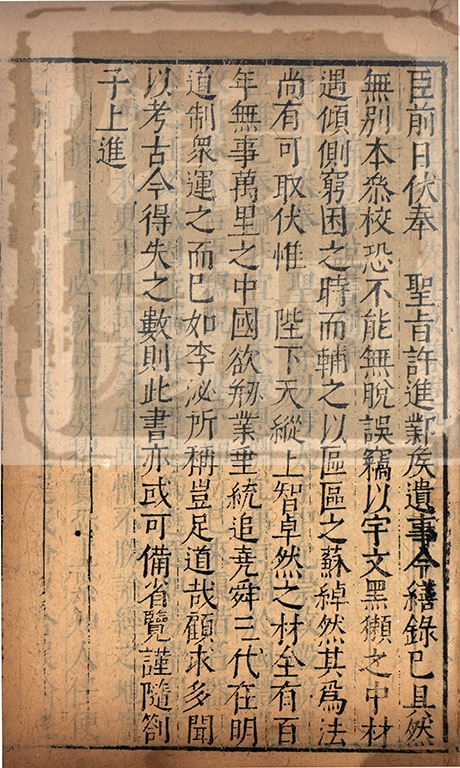 臣前日伏奉 聖㫖許進鄴侯遺事今繕錄已具然
無別本叅校恐不能無脫誤竊以宇文黑獺之中材
遇傾側窮困之時而輔之以區區之蘇綽然其為法
尚有可取伏惟 陛下天縱上智卓然之材全有百
年無事萬里之中國欲刱業垂統追堯舜三代在明
道制衆運之而已如李泌所稱豈足道哉顧求多聞
以考古今得失之數則此書亦或可備省覽謹隨劄
子上進